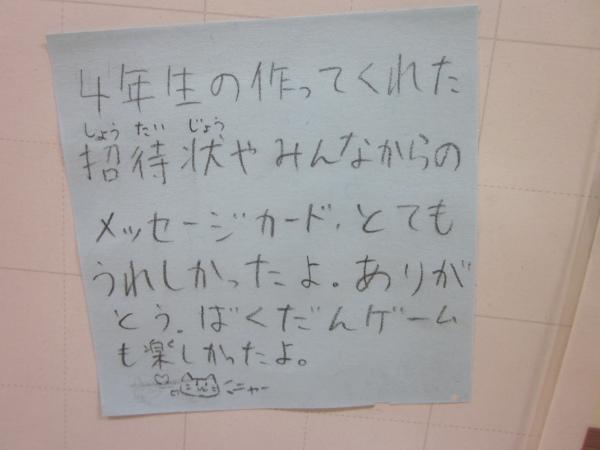 4年生の作ってくれた
しょう たい じょう
招待状やみんなからの
メッセージカード、とても
うれしかったよ。ありが
とう。ばくだんゲーム
も楽しかったよ。
ニャー